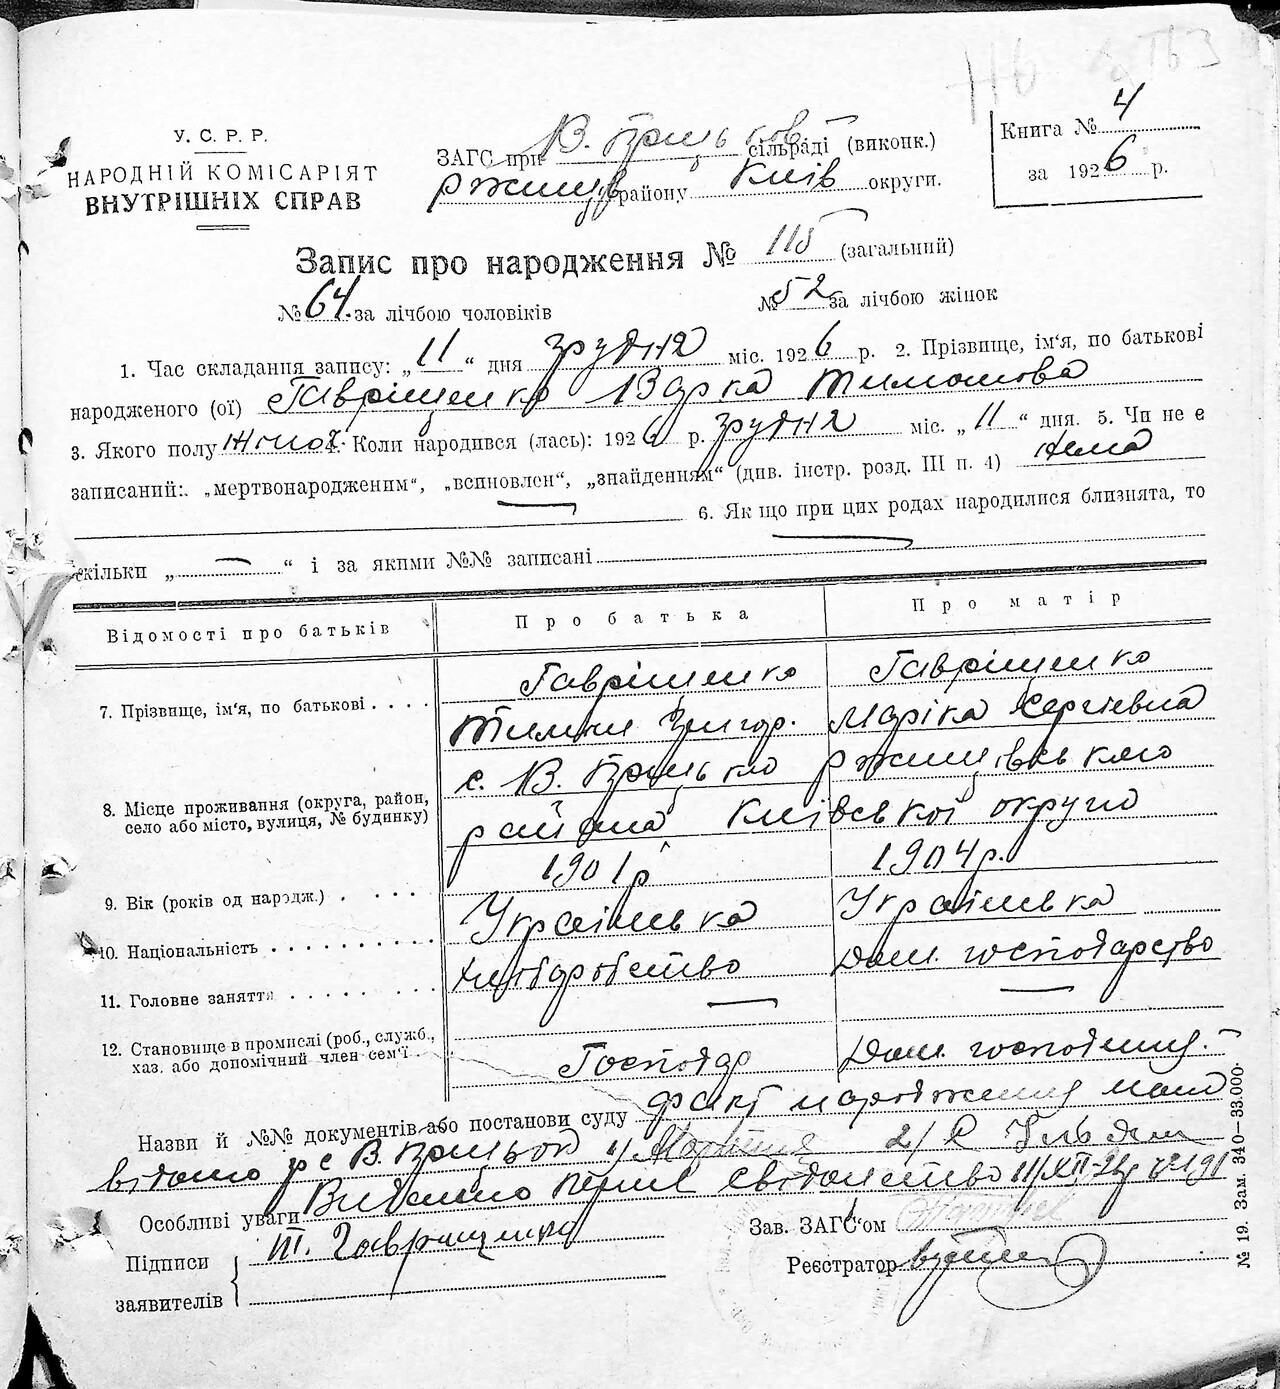 У. С. Р. Р.
НАРОДНІЙ КОМІСАРІЯТ
ВНУТРІШНІХ СПРАВ
ЗАГС при В. Прицьков сільраді (виконк.)
Ржищів району Київ округи.
Книга № 4
за 1926 р.
Запис про народження № 115 (загальний)
№ 64. за лічбою чоловіків № 52 за лічбою жінок
1. Час складання запису: „ 11 “ дня грудня міс. 1926 р. 2. Прізвище, ім'я, по батькові
народженого (ої) Гавріщенко Варка Тимошова
3. Якого полу жіноч. 4. Коли народився (лась): 1926 р. грудня міс. „ 11 “ дня. 5. Чи не є
записаний: „мертвонародженим“, „всиновлен“, „знайденням“ (див. інстр. розд. III п. 4) нема
6. Як що при цих родах народилися близнята, то
скільки „ — “ і за якими №№ записані
Відомості про батьків Про батька Про матір
7. Прізвище, ім'я, по батькові . . . . Гавріщенко Гавріщенко
Григор. Маріка Сергіевна
8. Місце проживання (округа, район,
село або місто, вулиця, № будинку)
с. В. Прицько Ржищівського
района Київської округи
9. Вік (років од народж.) . . . . 1901 р 1904 р.
10. Національність . . . . . . . . . . Українська Українська
11. Головне заняття . . . . . . . . . хліборобство Дом. господарство
12. Становище в промислі (роб., служб.,
хаз. або допомічний член сем'ї . . Господар Дом. господиня.
Назви й №№ документів або постанови суду факт народження мені
відомо с В. Прицьок 1/ 2/
Особливі уваги Видано перше свідоцтво 11/XII-26 р № 191
Підписи
заявителів
Т. Гаврищенко
Зав. ЗАГС'ом
Реєстратор
№ 19. Зам. 340—33.000.